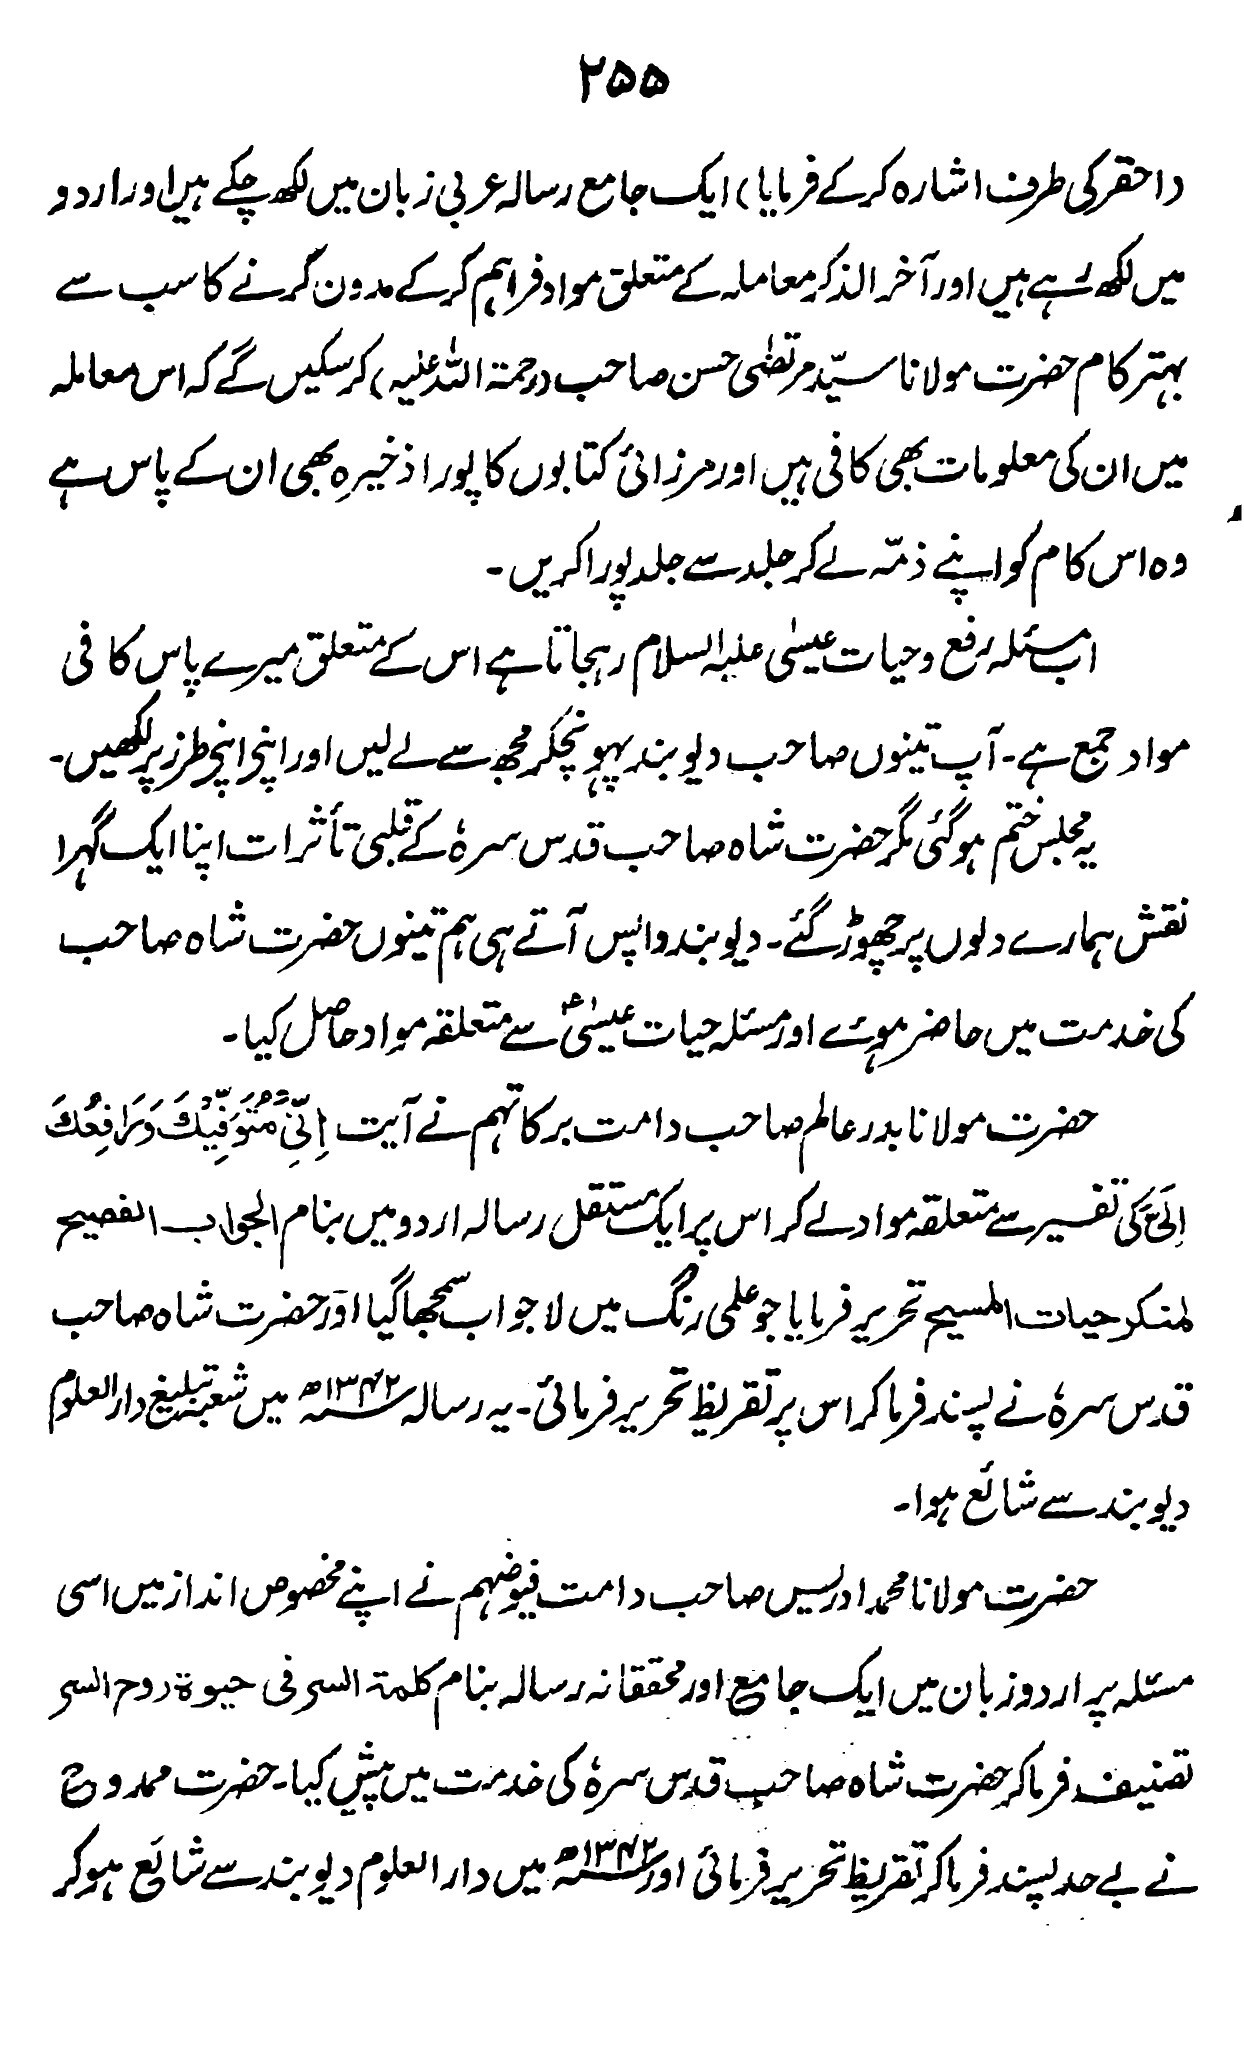 ۲۵۵
(احقر کی طرف اشارہ کرکے فرمایا) ایک جامع رسالہ عربی زبان میں لکھ چکے ہیں اور اردو
میں لکھ رہے ہیں اور آخر الذکر معاملہ کے متعلق مواد فراہم کرکے مدون کرنے کا سب سے
بہتر کام حضرت مولانا سیّد مرتضٰی حسن صاحب (رحمۃ اللہ علیہ) کرسکیں گے کہ اس معاملہ
میں ان کی معلومات بھی کافی ہیں اور مرزائی کتابوں کا پورا ذخیرہ بھی ان کے پاس ہے
وہ اس کام کو اپنے ذمّہ لے کر جلد سے جلد پورا کریں۔
اب مسئلہ رفع و حیات عیسٰی علیہ السلام رہجاتا ہے اس کے متعلق میرے پاس کافی
مواد جمع ہے۔ آپ تینوں صاحب دیوبند پہونچکر مجھ سے لے لیں اور اپنی اپنی طرز پر لکھیں۔
یہ مجلس ختم ہوگئی مگر حضرت شاہ صاحب قدس سرہٗ کے قلبی تأثرات اپنا ایک گہرا
نقش ہمارے دلوں پر چھوڑ گئے۔ دیوبند واپس آتے ہی ہم تینوں حضرت شاہ صاحب
کی خدمت میں حاضر ہوئے اور مسئلہ حیات عیسٰیؑ سے متعلقہ مواد حاصل کیا۔
حضرت مولانا بدر عالم صاحب دامت برکاتہم نے آیت إِنِّي مُتَوَفِّيكَ وَرَافِعُكَ
اِلَیَّ کی تفسیر سے متعلقہ مواد لے کر اس پر ایک مستقل رسالہ اردو میں بنام الجواب الفصیح
لمنکر حیات المسیح تحریر فرمایا جو علمی رنگ میں لاجواب سمجھا گیا اور حضرت شاہ صاحب
قدس سرہٗ نے پسند فرماکر اس پر تقریظ تحریر فرمائی۔ یہ رسالہ ۱۳۴۲ھ میں شعبۂ تبلیغ دارالعلوم
دیوبند سے شائع ہوا۔
حضرت مولانا محمد ادریس صاحب دامت فیوضہم نے اپنے مخصوص انداز میں اسی
مسئلہ پر اردو زبان میں ایک جامع اور محققانہ رسالہ بنام کلمۃ السر فی حیوۃ روح السر
تصنیف فرماکر حضرت شاہ صاحب قدس سرہٗ کی خدمت میں پیش کیا۔ حضرت ممدوح
نے بے حد پسند فرماکر تقریظ تحریر فرمائی اور ۱۳۴۲ھ میں دارالعلوم دیوبند سے شائع ہوکر